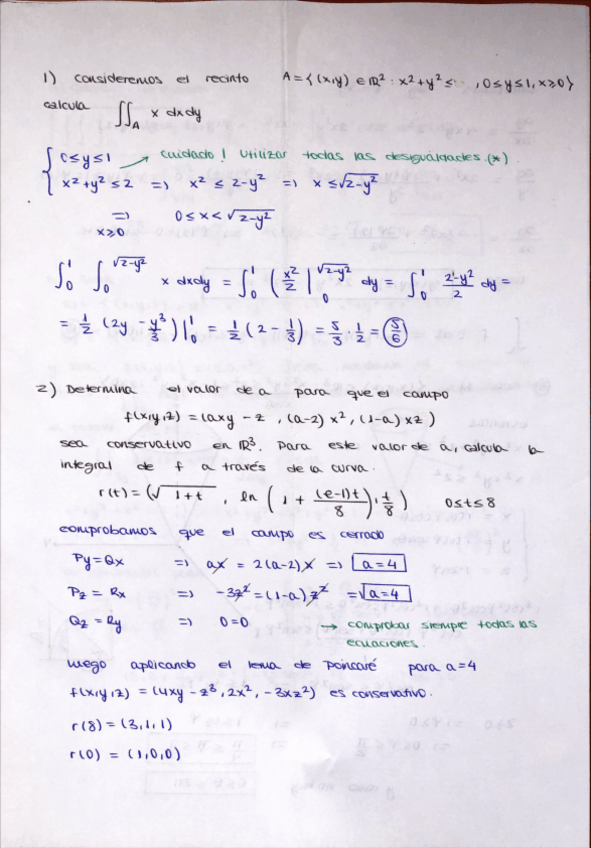 1) Consideremos el recinto A = { (x,y) ∈ ℝ² : x²+y² ≤ , 0≤y≤1, x≥0 }
calcula ∬_A x dxdy
0≤y≤1 → cuidado! Utilizar todas las desigualdades (*).
x²+y² ≤ 2 => x² ≤ 2-y² => x ≤ √(2-y²)
=> 0 ≤ x < √(2-y²)
x≥0
∫₀¹ ∫₀^√(2-y²) x dxdy = ∫₀¹ ( x²/2 |₀^√(2-y²) dy = ∫₀¹ (2-y²)/2 dy =
= 1/2 (2y - y³/3) |₀¹ = 1/2 (2 - 1/3) = 5/3 · 1/2 = 5/6
2) Determina el valor de a para que el campo
f(x,y,z) = (axy - z , (a-2) x² , (1-a) xz )
sea conservativo en ℝ³. Para este valor de a, calcula la
integral de f a través de la curva.
r(t) = (√(1+t) , ln ( 1 + (e-1)t/8 ) , t/8 ) 0≤t≤8
comprobamos que el campo es cerrado
Py = Qx => ax = 2(a-2)x => a=4
Pz = Rx => -3z² = (1-a) z² => a=4
Qz = Ry => 0=0 → comprobar siempre todas las
ecuaciones.
luego aplicando el lema de Poincaré para a=4
f(x,y,z) = (4xy - z³, 2x², -3xz²) es conservativo.
r(8) = (3,1,1)
r(0) = (1,0,0)